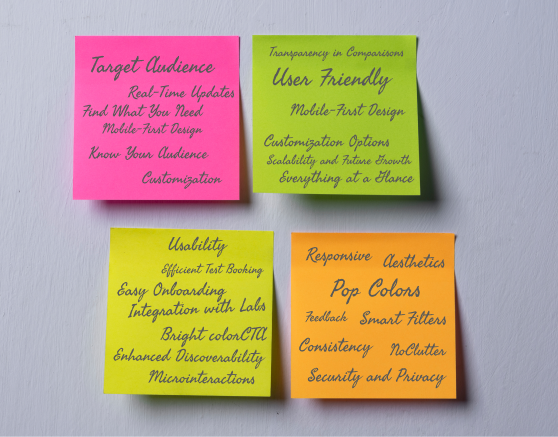 Target Audience
Real-Time Updates
Find What You Need
Mobile-First Design
Know Your Audience
Customization
Transparency in Comparisons
User Friendly
Mobile-First Design
Customization Options
Scalability and Future Growth
Everything at a Glance
Usability
Efficient Test Booking
Easy Onboarding
Integration with Labs
Bright colorCTA
Enhanced Discoverability
Microinteractions
Responsive
Aesthetics
Pop Colors
Feedback Smart Filters
Consistency NoClutter
Security and Privacy